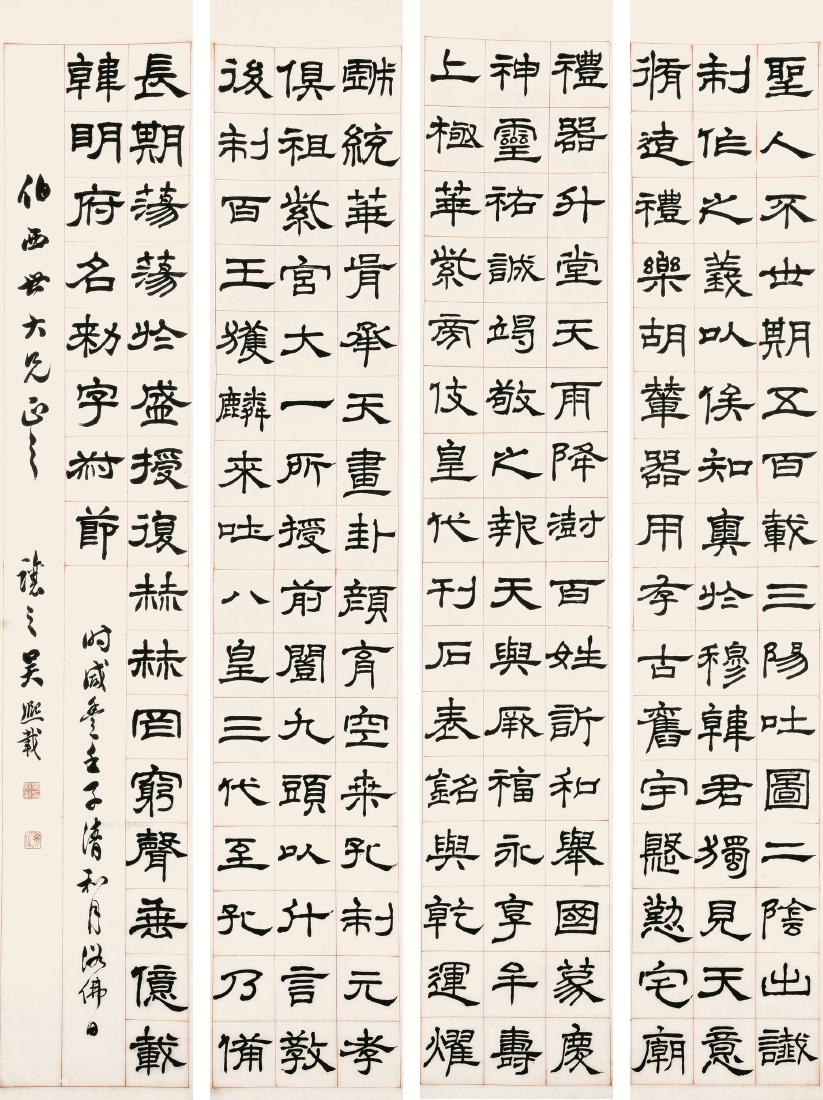 聖人不世期五百載三陽吐圖二陰出讖
制作之義以俟知奧於穆韓君獨見天意
脩造禮樂胡輦器用存古舊宇慇懃宅廟
禮器升堂天雨降澍百姓訢和舉國蒙慶
神靈祐誠竭敬之報天與厥福永享牟壽
上極華紫旁伎皇代刊石表銘與乾運燿
戲統華胥承天畫卦顏育空桑孔制元孝
俱祖紫宮大一所授前闓九頭以什言教
後制百王獲麟來吐八皇三代至孔乃備
長期蕩蕩於盛授復赫赫罔窮聲垂億載
韓明府名勑字叔節
時咸豐壬子清和月浴佛日
伯西世大兄正之
讓之吳熙載